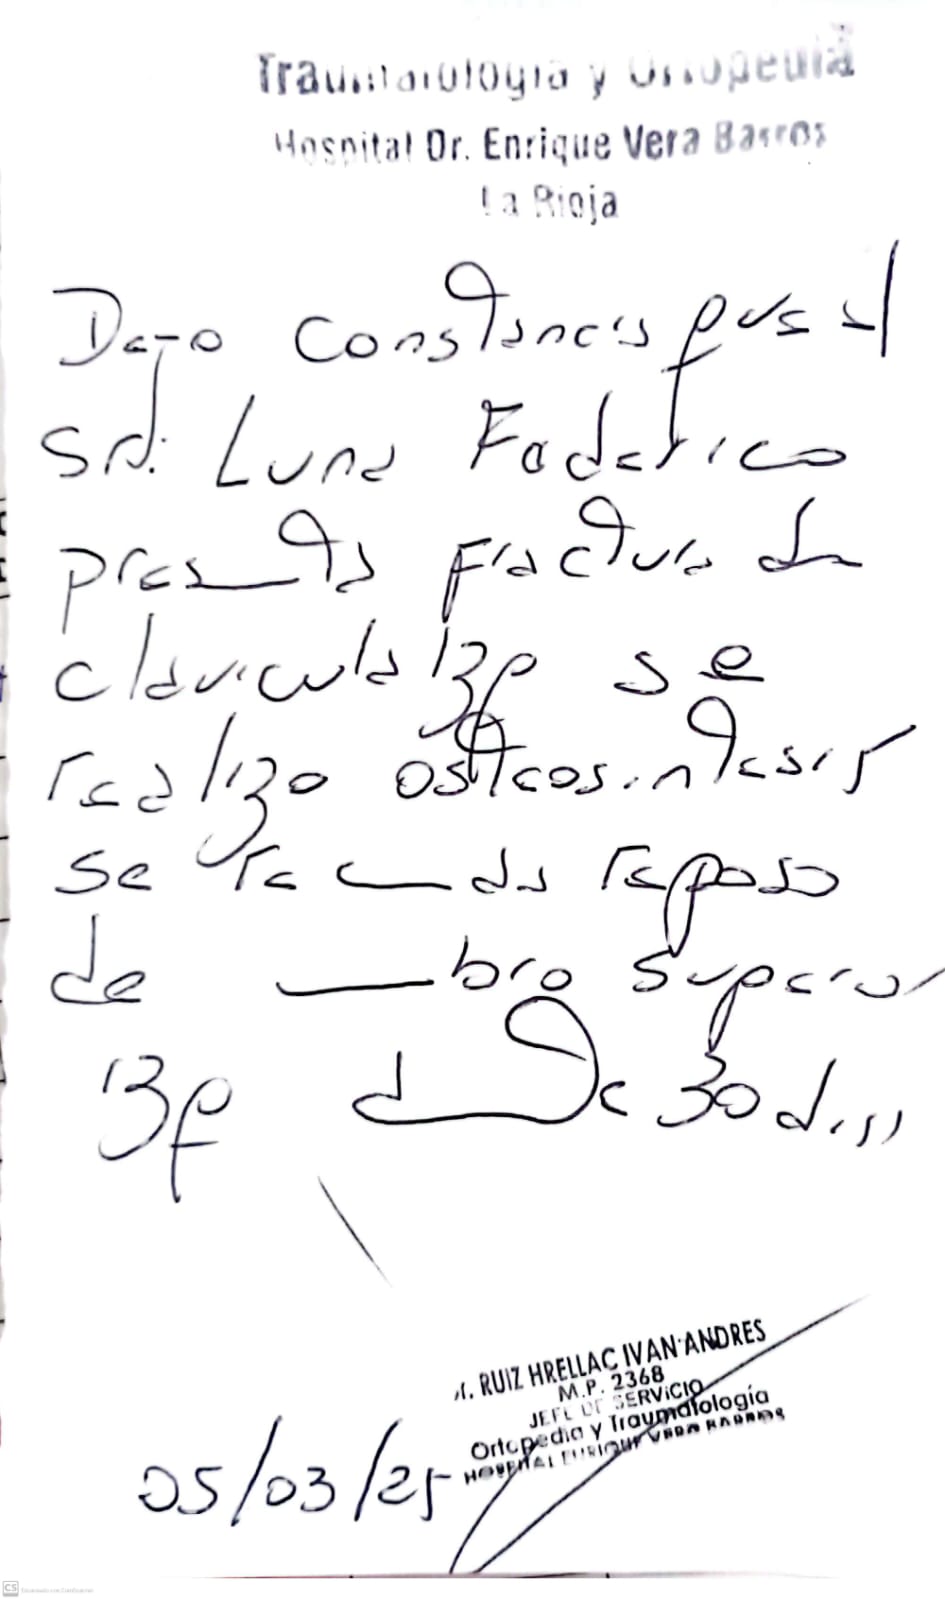 Traumatología y Ortopedia
Hospital Dr. Enrique Vera Barros
La Rioja
Dejo constancia que el
Sr.: Luna Federico
presenta fractura de
clavicula izq se
realizo osteosintesis
se recomienda reposo
de miembro superior
izq durante 30 dias
RUIZ HRELLAC IVAN ANDRES
M.P. 2368
JEFE DE SERVICIO
Ortopedia y Traumatología
HOSPITAL ENRIQUE VERA BARROS
05/03/25
CS